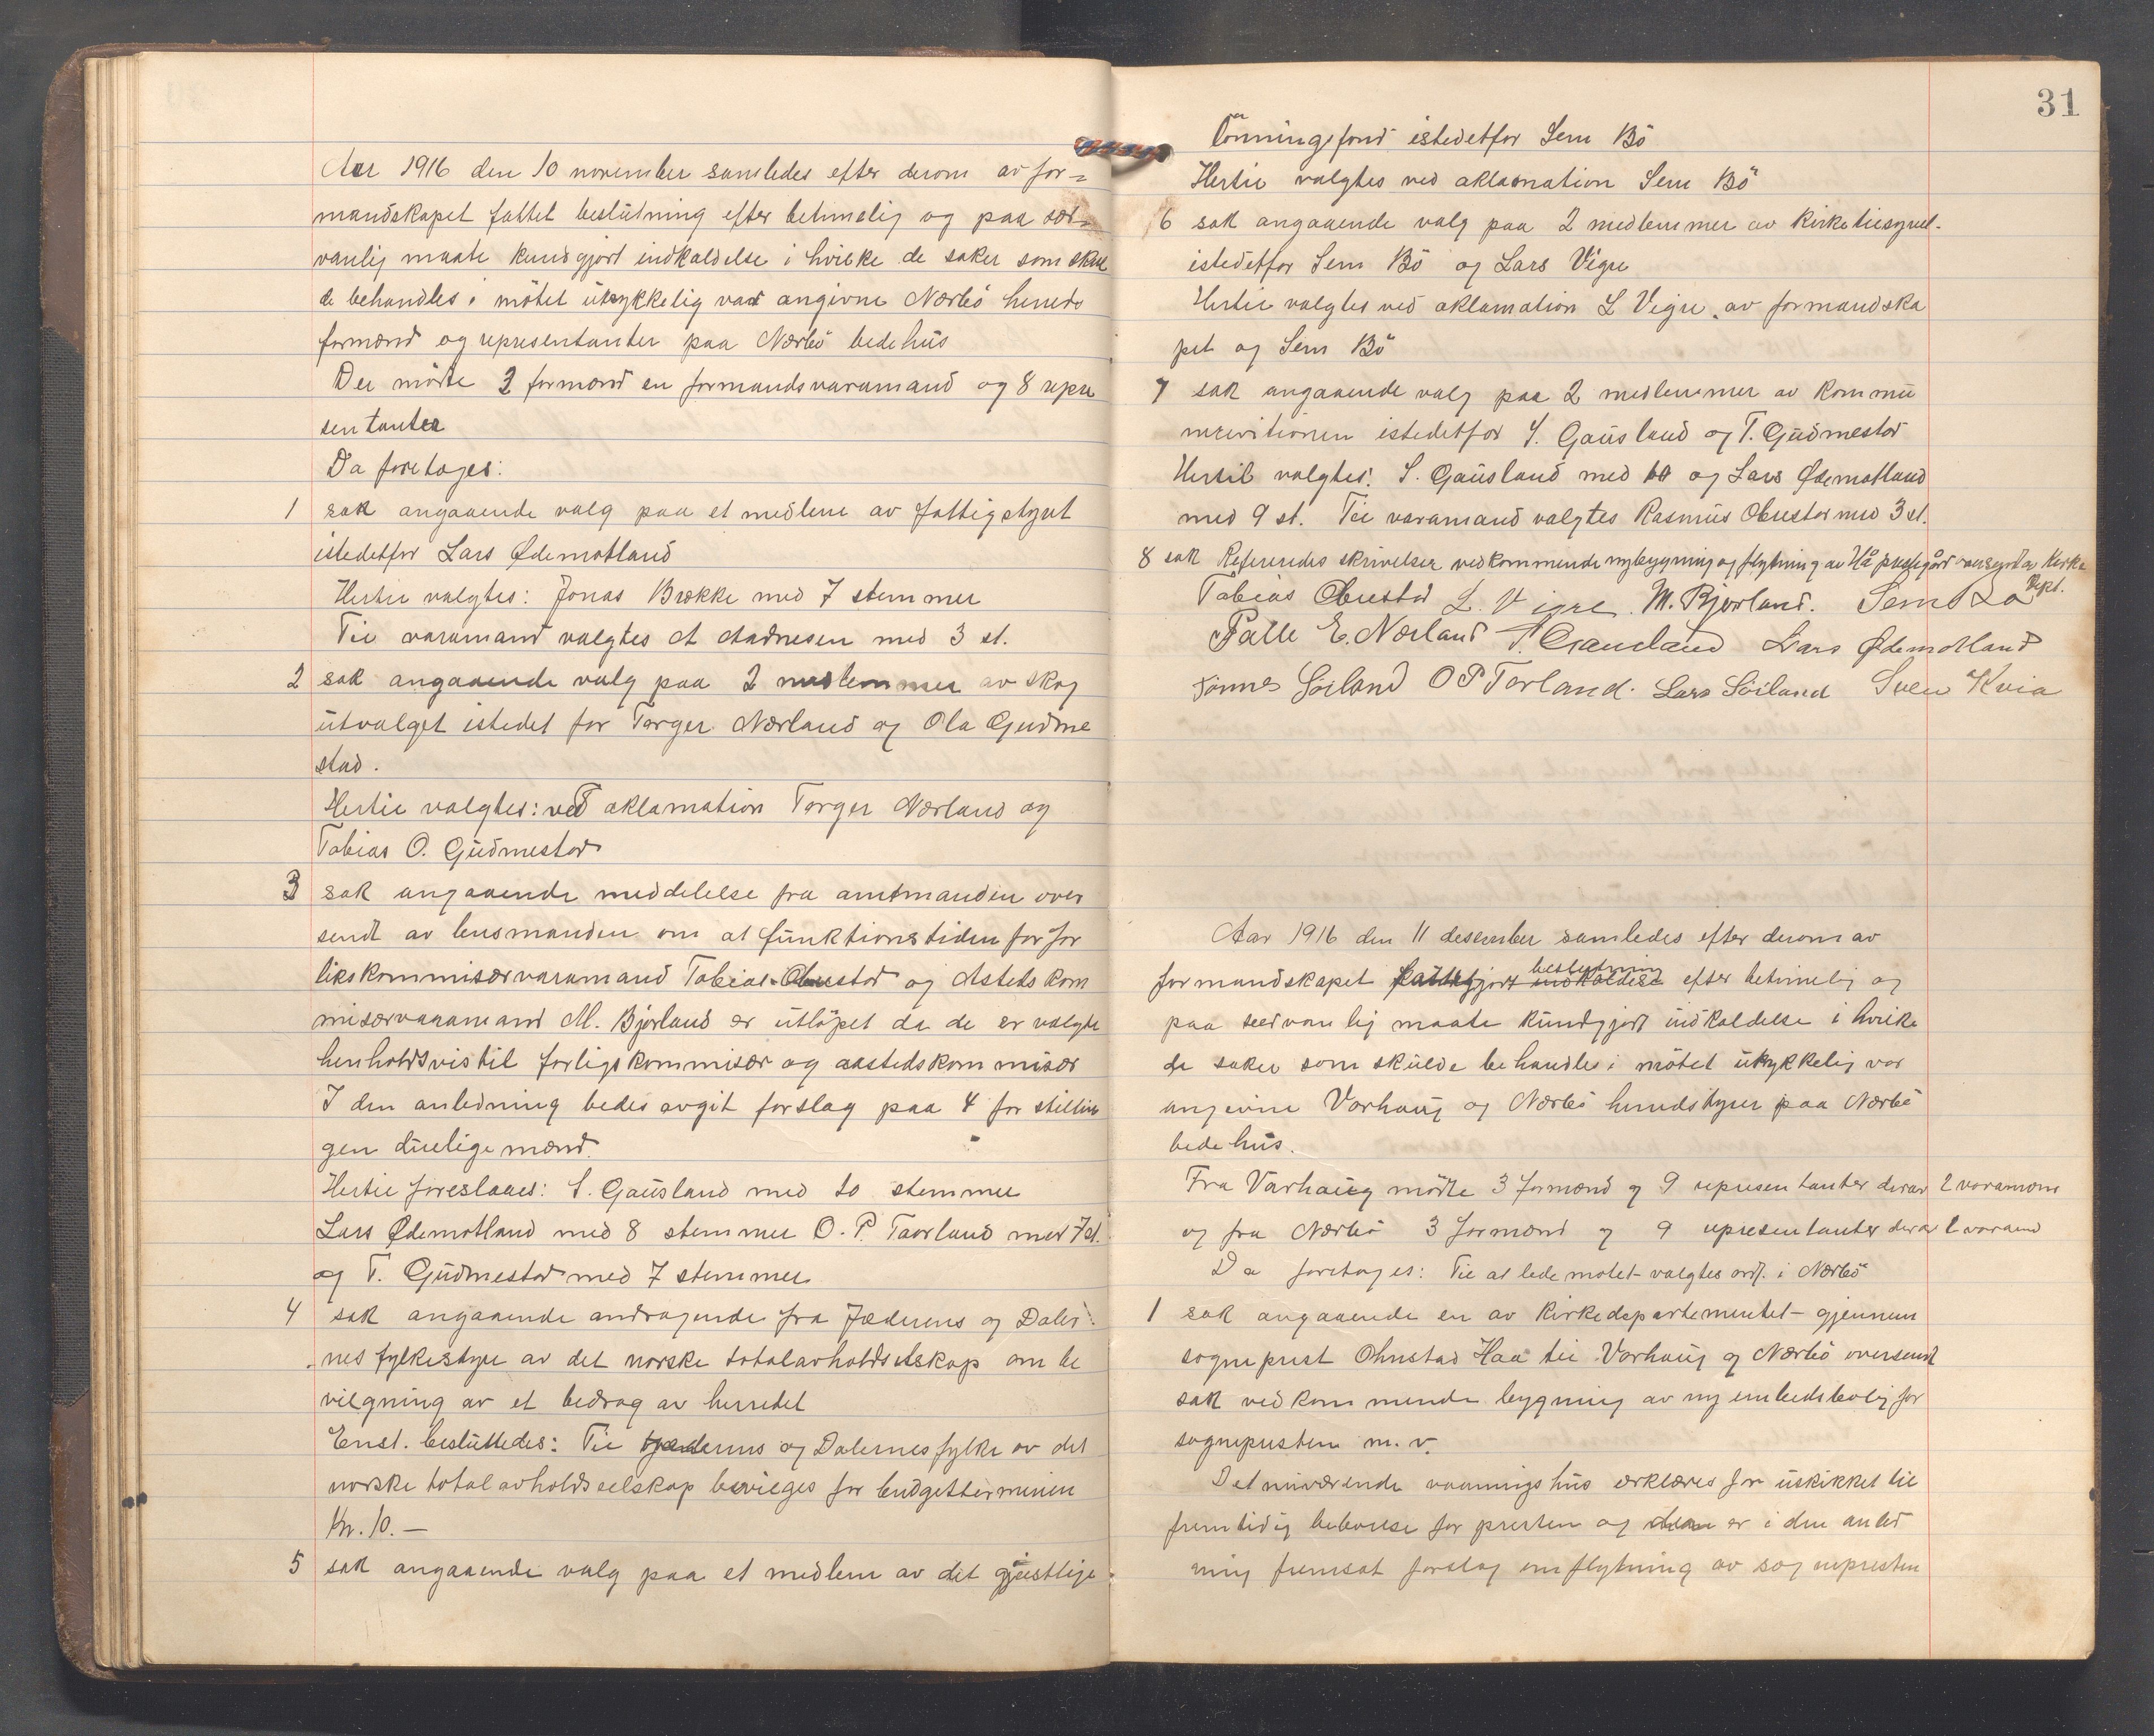 Aar 1916 den 10 november samledes efter derom av for=
mandskapet fattet beslutning efter betimelig og paa sæd-
vanlig maate kundgjort indkaldelse i hvilke de saker som skul
de behandles i mötet utrykkelig var angivne Nærbö herreds
formænd og representanter paa Nærbö bedehus
Der mötte 3 formænd en formandsvaramand og 8 repre
sentanter
Da foretoges:
1 sak angaaende valg paa et medlem av fattigstyret
istedetfor Lars Ødemotland
Hertil valgtes: Jonas Brække med 7 stemmer
Til varamand valgtes A Aadnesen med 3 st.
2 sak angaaende valg paa 2 medlemmer av skog
utvalget istedet for Torger Nærland og Ola Gudme
stad.
Hertil valgtes: ved aklamation Torger Nærland og
Tobias O. Gudmestad
3 sak angaaende meddelelse fra amtmanden over
sendt av lensmanden om at funktionstiden for for
likskommisærvaramand Tobias Obrestad og Astedskom
misærvaramand M. Bjorland er utlöpet da de er valgte
henholdsvis til forligskommisær og aastedskommisær
I den anledning bedes avgit forslag paa 4 for stillin
gen duelige mænd.
Hertil foreslaaes: S. Gausland med 10 stemmer
Lars Ødemotland med 8 stemmer O. P. Taarland med 7 st.
og T. Gudmestad med 7 stemmer
4 sak angaaende andragende fra Jæderens og Daler-
nes fylkestyre av det norske totalavholdselskap om be
vilgning av et bedrag av herredet
Enst. besluttedes: Til Jæderens og Dalernes fylke av det
norske total avholdsselskap bevilges for budgetterminen
Kr. 10.—
5 sak angaaende valg paa et medlem av det gjeistlige
31
lönningsfond istedetfor Sem Bö
Hertil valgtes ved aklamation Sem Bö
6 sak angaaende valg paa 2 medlemmer av kirketilsynet
istedetfor Sem Bö og Lars Vigre
Hertil valgtes ved aklamation L Vigre av formandska
pet og Sem Bö
7 sak angaaende valg paa 2 medlemmer av kommu
nerevitionen istedetfor S. Gausland og T. Gudmestad
Hertil valgtes: S. Gausland med 10 og Lars Ødemotland
med 9 st. Til varamand valgtes Rasmus Obrestad med 3 st.
8 sak Refereredes skrivelser vedkommende nybygning og flytning av Hå prestegård oversendt av Kirke
dept.
Tobias Obrestad L. Vigre. M. Bjorland. Sem Bö
Palle E. Nærland S. Gausland Lars Ødemotland
Tönnes Söiland O P Torland. Lars Söiland Sven Kvia
Aar 1916 den 11 desember samledes efter derom av
beslutning
formandskapet kundgjort indkaldelse efter betimelig og
paa sedvanlig maate kundgjort indkaldelse i hvilke
de saker som skulde behandles i mötet utrykkelig var
angivne Varhaug og Nærbö herredstyrer paa Nærbö
bedehus.
Fra Varhaug mötte 3 formænd og 9 representanter derav 2 varamænd
og fra Nærbö 3 formænd og 9 representanter derav 2 varamd
Da foretoges: Til at lede motet valgtes ordf. i Nærbö
1 sak angaaende en av Kirkedepartementet gjennem
sogneprest Ohnstad Haa til Varhaug og Nærbö oversendt
sak vedkommende bygning av ny embedsbolig for
sognepresten m. v.
Det nuværende vaaningshus erklæres for uskikket til
fremtidig beboelse for presten og der er i den anled
ning fremsat forslag om flytning av sognepresten